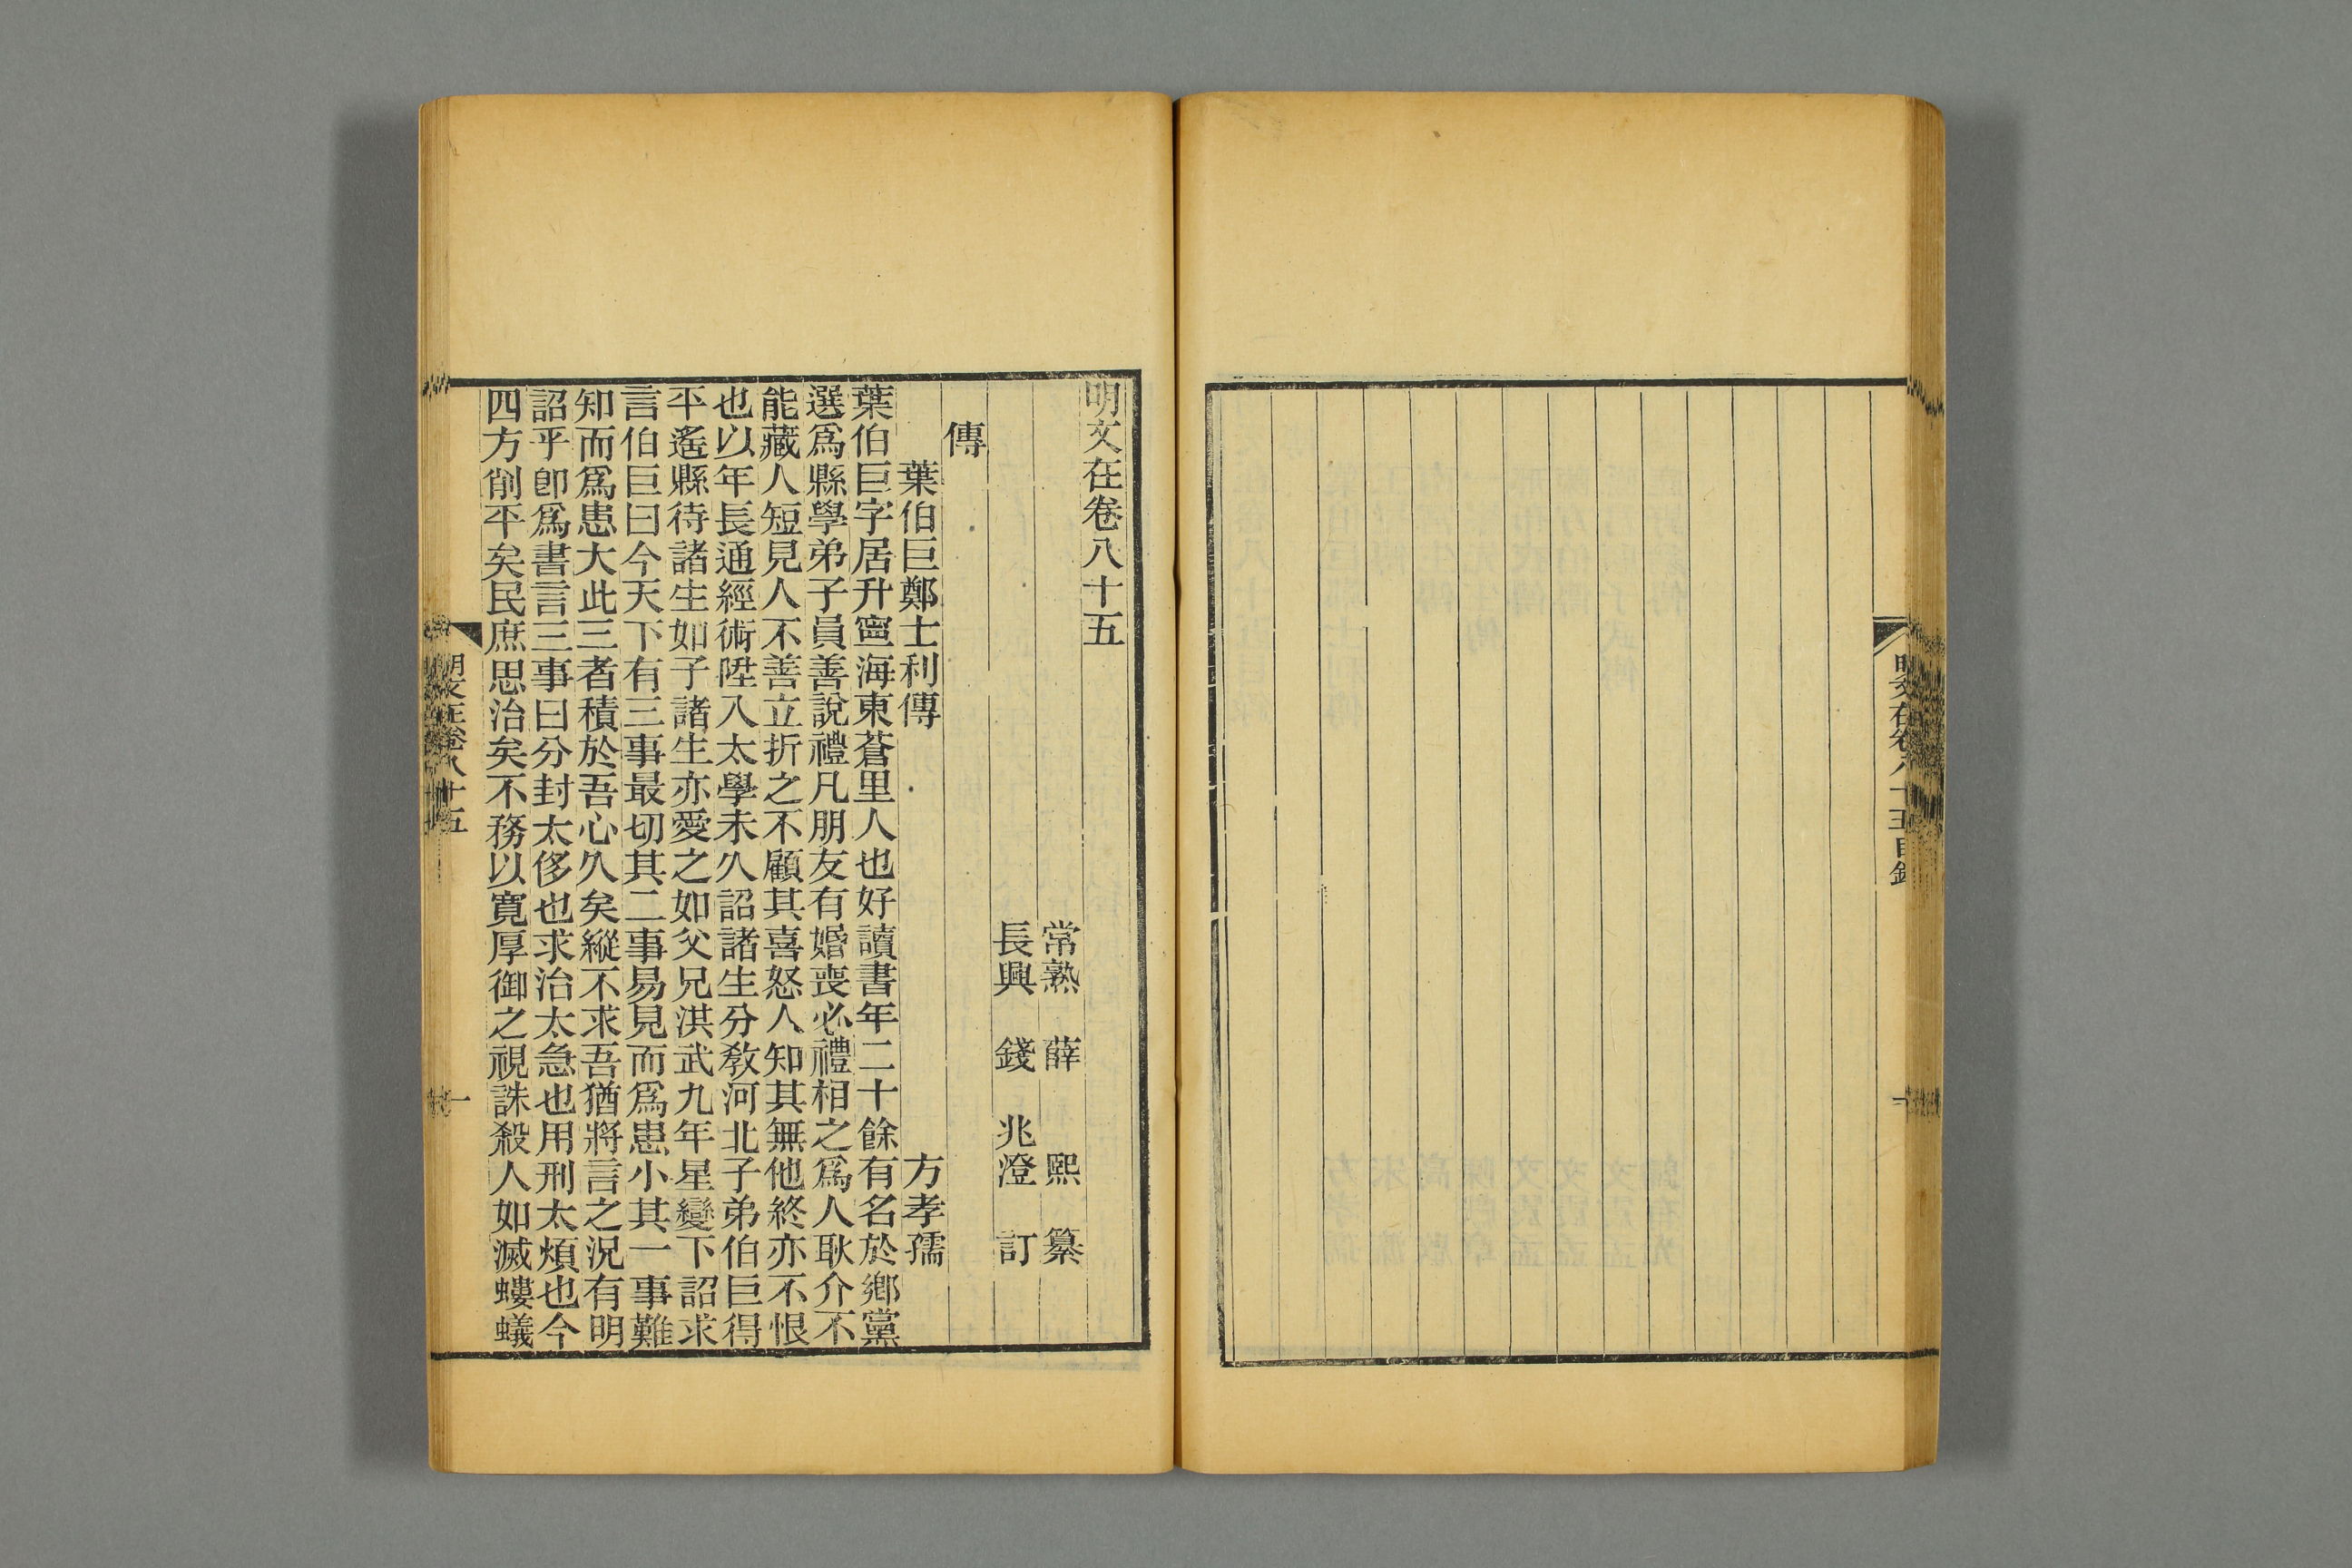 明文在卷八十五
常熟 薛 熙 纂
長興 錢 兆澄 訂
傳
葉伯巨鄭士利傳 方孝孺
葉伯巨字居升寧海東蒼里人也好讀書年二十餘有名於鄉黨
選爲縣學弟子員善說禮凡朋友有婚喪必禮相之爲人耿介不
能藏人短見人不善立折之不顧其喜怒人知其無他終亦不恨
也以年長通經術陞入太學未久詔諸生分敎河北子弟伯巨得
平遙縣待諸生如子諸生亦愛之如父兄洪武九年星變下詔求
言伯巨曰今天下有三事最切其二事易見而爲患小其一事難
知而爲患大此三者積於吾心久矣縱不求吾猶將言之況有明
詔乎卽爲書言三事曰分封太侈也求治太急也用刑太煩也今
四方削平矣民庶思治矣不務以寬厚御之視誅殺人如滅螻蟻
明文在卷八十五
一